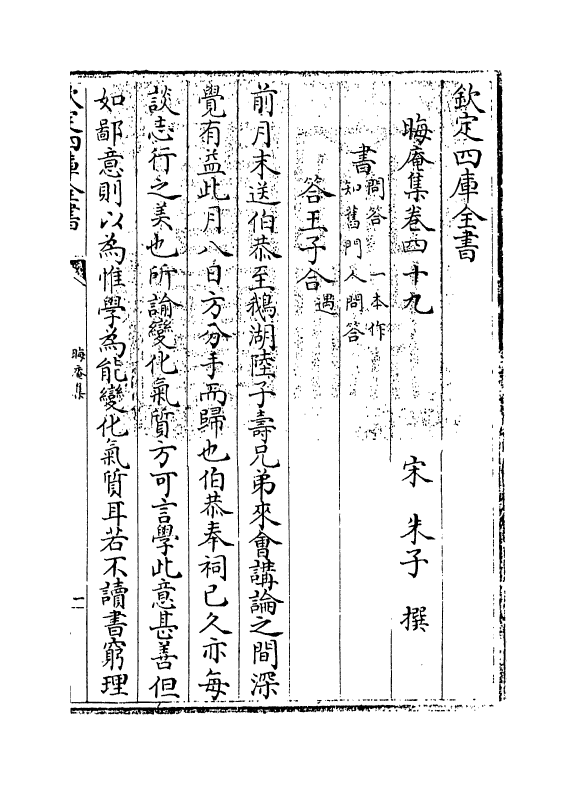 欽定四庫全書
晦庵集卷四十九
宋 朱子 撰
書問答 一本作
知舊門人問答
答王子合遇
前月末送伯恭至鵝湖陸子壽兄弟來會講論之間深
覺有益此月八日方分手而歸也伯恭奉祠已久亦每
談志行之美也所諭變化氣質方可言學此意甚善但
如鄙意則以為惟學為能變化氣質耳若不讀書窮理
欽定四庫全書
晦庵集
一